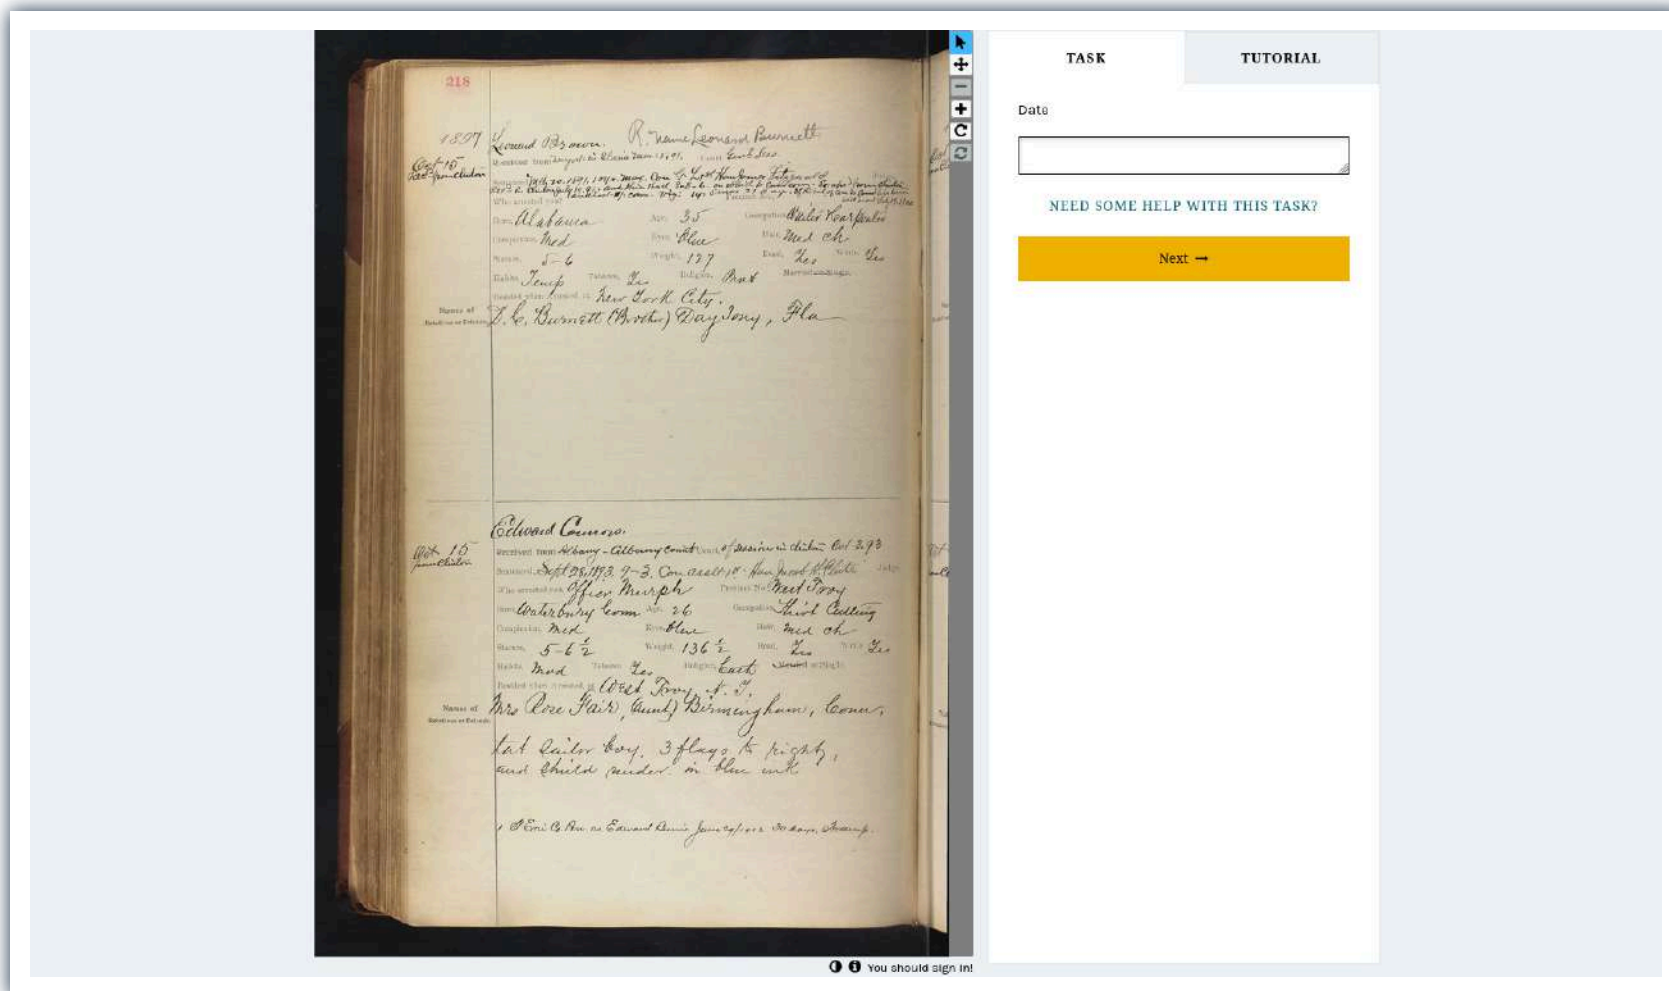 218
1897
Leonard Brown. R. name Leonard Burnett
Oct 15
from Clinton
Received from
Sentenced
Who arrested you
Born, Alabama Age, 35 Occupation,
Complexion, Med Eyes, blue Hair, Med Ch
Stature, 5-6 Weight, 127 Read, Yes Write Yes
Habits, Temp Tobacco, Yes Religion, Prot Married or Single.
Resided when arrested at New York City.
Names of
Relatives or Friends
D. C. Burnett (Brother) Daytony, Fla
Edward Connors.
Oct 15
from Clinton
Received from Albany - Albany County Court of Session in Clinton Oct 2, 93
Sentenced, Sept 28, 1893. 9-3. Con asslt 1st Hon Judge
Who arrested you Officer Murph Precinct No. West Troy
Born, Waterbury Conn Age, 26 Occupation, Shirt Cutting
Complexion, Med Eyes, blue Hair, med ch
Stature, 5-6 1/2 Weight, 136 1/2 Read, Yes Write Yes
Habits, Mod Tobacco Yes Religion, Cath Married or Single
Resided when arrested at West Troy, N. Y.
Names of
Relatives or Friends
Mrs Rose Fair, (aunt) Birmingham, Conn,
tat Sailor boy. 3 flags to right,
and Shield under in blue ink
as Edward 30 days.
TASK
TUTORIAL
Date
NEED SOME HELP WITH THIS TASK?
Next →
You should sign in!